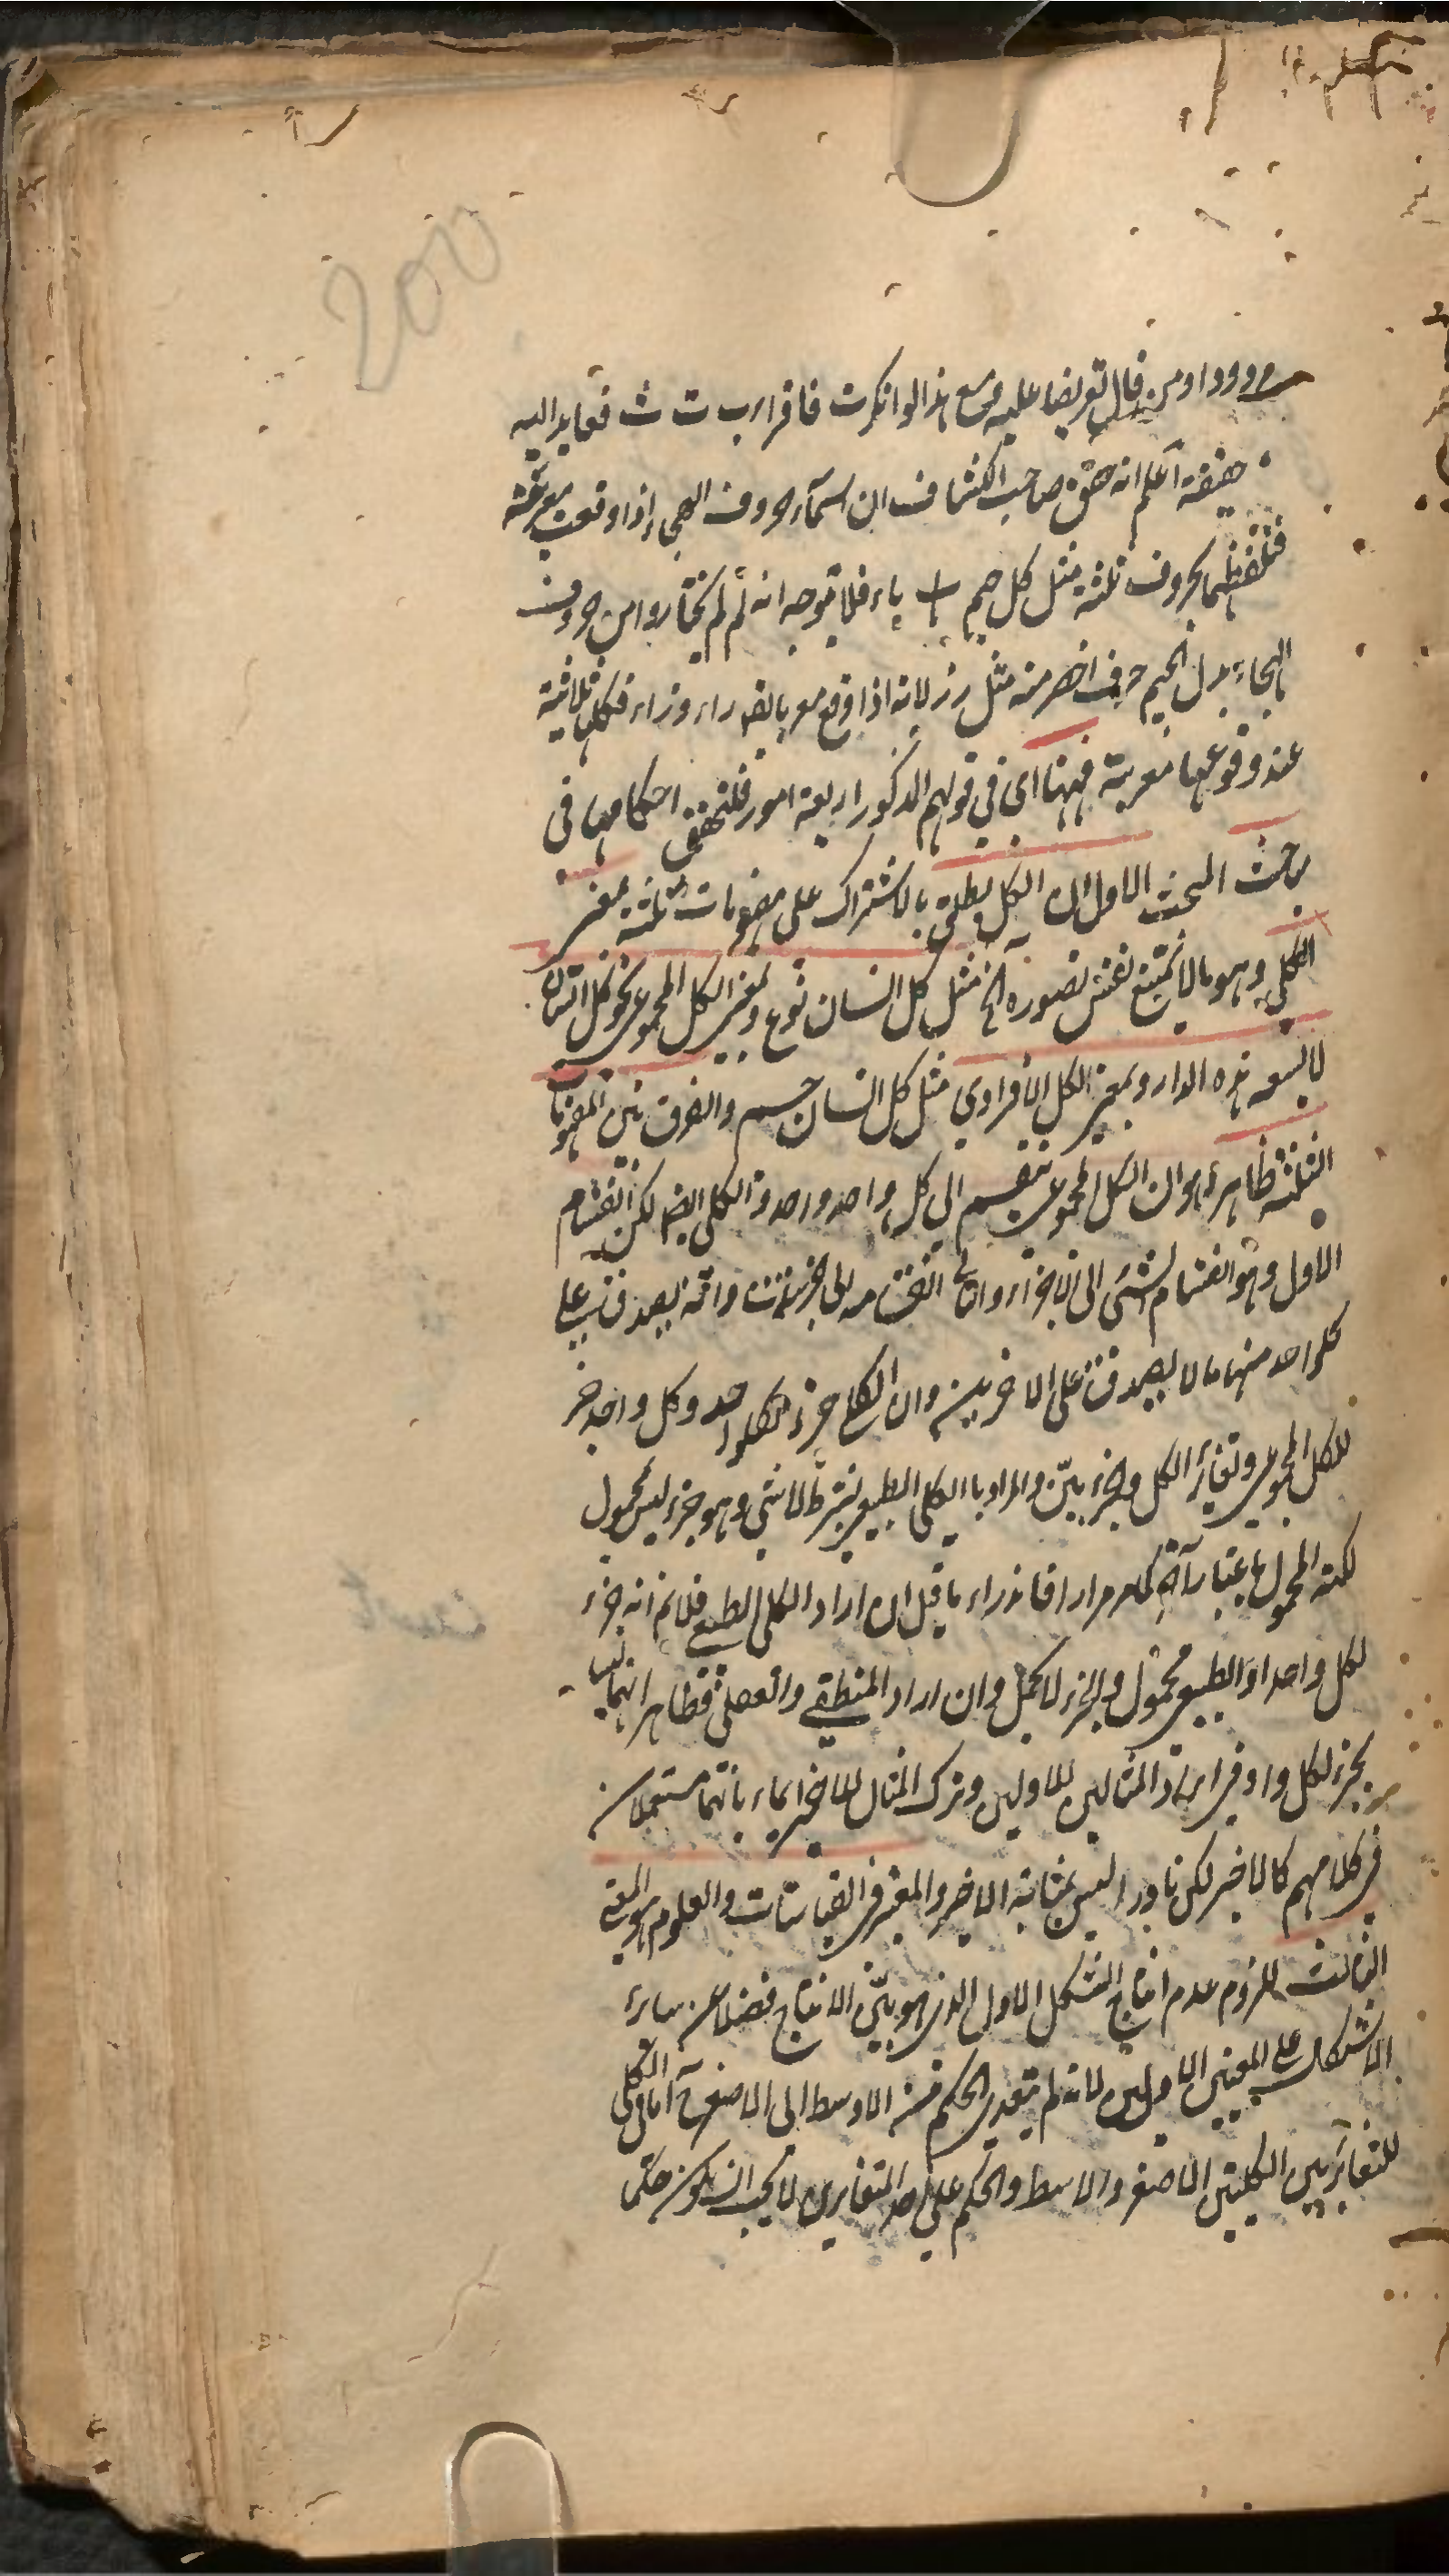 200
ومن قال تعريضا عليه مع هذا لو انكرت فاقرا ب ت ث فعايد اليه
حقيقة اعلم انه حقق صاحب الكشاف ان اسماء حروف الهجاء اذا وقعت معربة
فتلفظها بحروف ثلثة مثل كل جيم باء فلا يتوجه انه لم لم يختاروا من حروف
الهجاء بدل الجيم حرف اخصر منه مثل ر ز لانه اذا وقع معربا يقر راء وزاء فكلها ثلاثية
عند وقوعها معربة فههنا اى في قولهم المذكور اربعة امور فلنحقق احكامها في
مباحث المبحث الاول ان الكل يطلق بالاشتراك على مفهومات ثلثة بمعنى
الكلي وهو ما لا يمتنع نفس تصوره الخ مثل كل انسان نوع وبمعنى الكل المجموعي نحو كل انسان
لا يسعه هذه الدار وبمعنى الكل الافرادي مثل كل انسان جسم والفرق بين المفهومات
الثلثة ظاهر هو ان الكل المجموعي ينقسم الى كل واحد واحد والكلي ايضا لكن انقسام
الاول وهو انقسام الشئ الى الاجزاء والثاني انقسامه الى جزئيات وانه يصدق على
كلواحد منها ما لا يصدق على الاخريين وان الكلي جزء لكلواحد وكل واحد جزء
للكل المجموعي وتغاير الكل وجزء بيّن والمراد بالكلي الطبيعي بشرط لا شئ وهو جزء ليس بمحمول
لكنه المحمول باعتبار آخر كما مر مرارا فاندراء ما قيل ان اراد الكلي الطبعي فلا نم انه جزء
لكل واحد اذ الطبيعي محمول والجزء لا يحمل وان اراد المنطقي والعقلي فظاهر انهما ليسا
بجزء لكل واحد وفي ايراد المثالين للاولين وترك المثال للاخير ايماء بانهما مستعملان
في كلامهم كالاخير لكن نادرا ليس بمثابة الاخير والمعتبر في القياسات والعلوم هو المعنى
الثالث للزوم عدم انتاج الشكل الاول الذي هو بيّن الانتاج فضلا عن سائر
الاشكال على المعنيين الاولين لانه لم يتعدى الحكم من الاوسط الى الاصغر اما في الكلي
للتغاير بين الكليتين الاصغر والاوسط والحكم على احد المتغايرين لا يجب ان يكون حكما